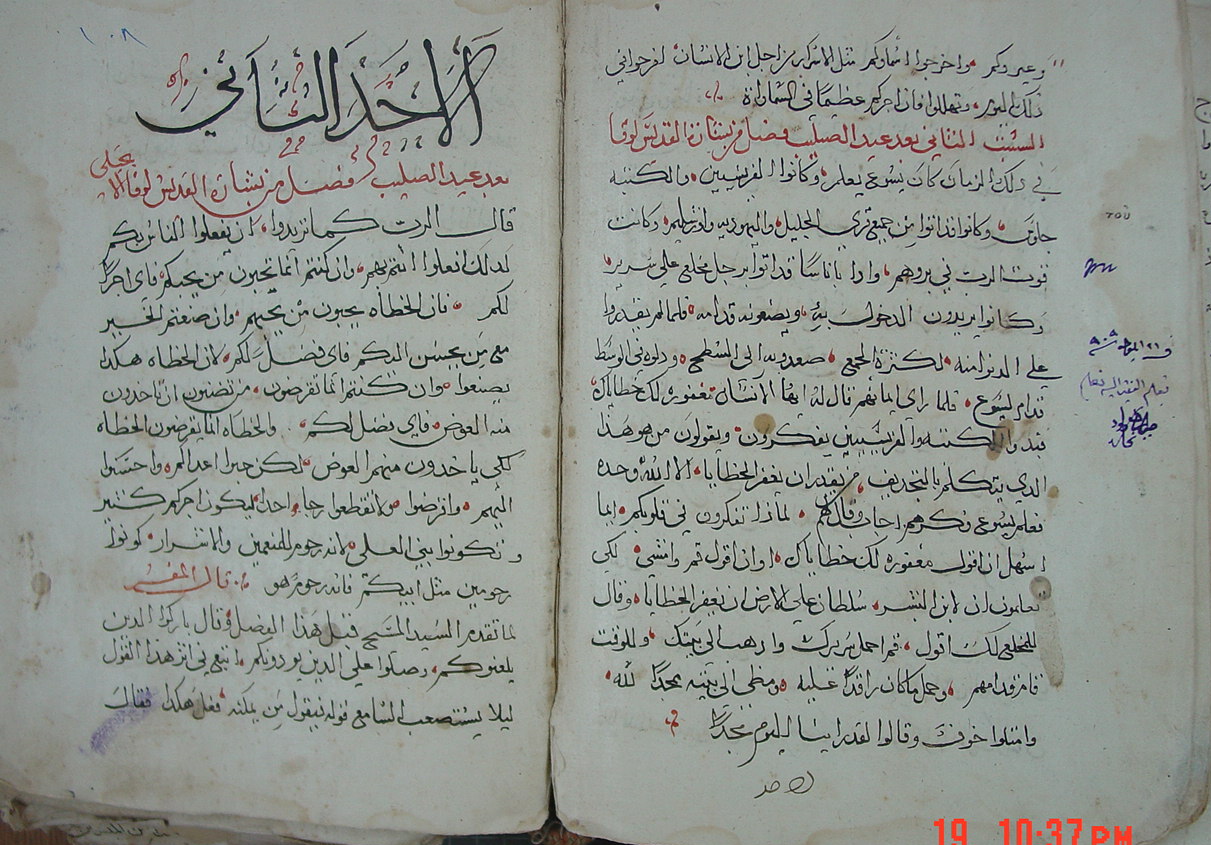 وعيروكم واخرجوا اسماوكم مثل الاشرار من اجل ابن الانسان افرحوا في
ذلك اليوم وتهللوا فان اجركم عظيما في السماوات
السبت الثاني بعد عيد الصليب فصل من بشارة القديس لوقا
في ذلك الزمان كان يسوع يعلم وكانوا الفريسيين والكتبه
جلوس وكانوا قد اتوا من جميع قري الجليل واليهوديه واورشليم وكانت
قوت الرب في بروهم واذا باناسا قد اتوا برجل مخلع علي سرير
وكانوا يريدون الدخول به ويضعونه قدامه فلما لم يقدروا
علي الدنوا منه لكثرة الجمع صعدو به الي السطح ودلوه في الوسط
قدام يسوع فلما راي ايمانهم قال له ايها الانسان مغفوره لك خطاياك
فبدوا الكتبه والفريسيين يفكرون ويقولون من هو هذا
الدي يتكلم بالتجديف من يقدر ان يغفر الخطايا الا الله وحده
فعلم يسوع فكرهم اجاب وقال لهم لماذا تفكرون في قلوبكم ايما
اسهل ان اقول مغفوره لك خطاياك او ان اقول قم وامشي لكي
تعلمون ان لابن البشر سلطان علي الارض ان يغفر الخطايا وقال
للمخلع لك اقول قم احمل سريرك وادهب الي بيتك وللوقت
قام قدامهم وحمل ما كان راقدا عليه ومظي الي بيته يمجدا لله
وامتلوا خوف وقالوا لقد راينا اليوم مجدا
الاحد
١٠٨
الاحد الثاني
بعد عيد الصليب فصل من بشارة القديس لوقا الانجيلي
قال الرب كما تريدوا ان يفعلوا الناس بكم
كدلك افعلوا انتم بهم وان كنتم انما تحبون من يحبكم فاي اجرا
لكم فان الخطاه يحبون من يحبهم وان صنعتم الخير
مع من يحسن اليكم فاي فضل لكم لان الخطاه هكدا
يصنعوا وان كنتم انما تقرضون من تضنون ان تاخدون
منه العوض فاي فضل لكم والخطاه انما يقرضون الخطاه
لكي ياخدون منهم العوض لكن حبوا اعداكم واحسنوا
اليهم واقرضوا ولا تقطعوا رجا احد ليكون اجركم كثير
وتكونوا بني العلي لانه رحوم للمنعمين والاشرار كونوا
رحومين مثل ابيكم فانه رحوم هو قال المفسر
لما تقدم السيد المسيح قبل هذا الفصل وقال باركوا الدين
يلعنوكم وصلوا علي الدين يوردوبكم اتبع في اثر هذا القول
ليلا يستصعب السامع قوله فيقول من يمكنه فعل هكدا فقال
19 10:37 PM